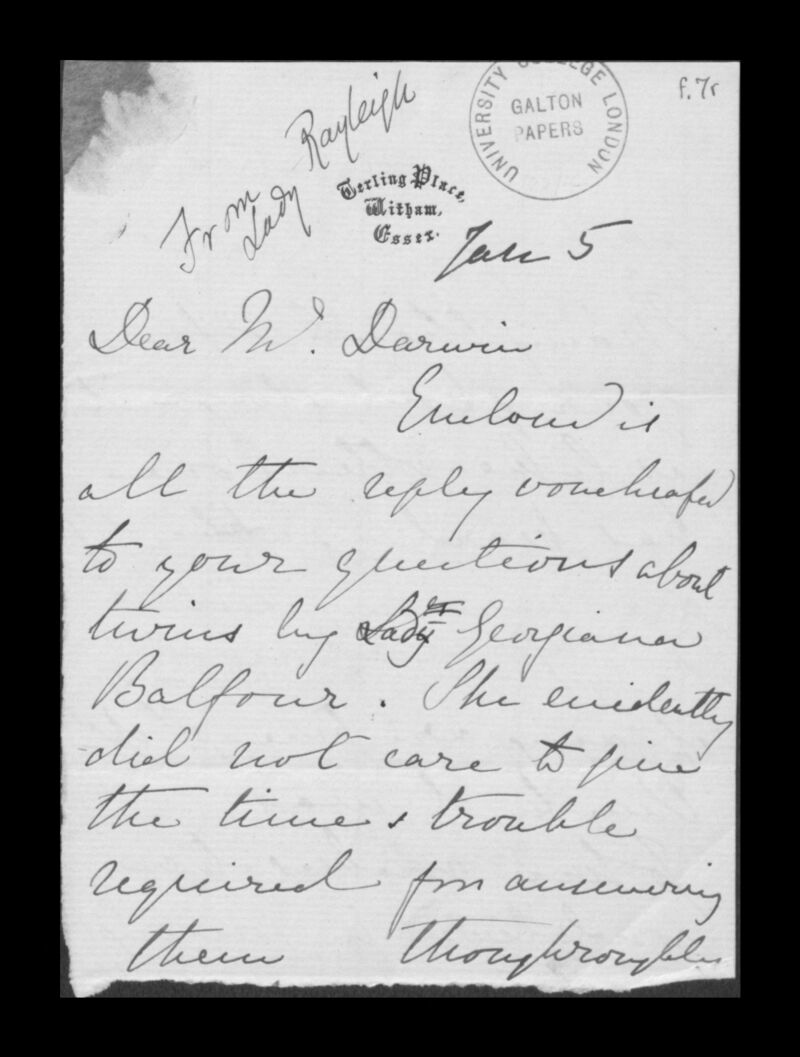 UNIVERSITY COLLEGE LONDON
GALTON
PAPERS
f. 7r
From Lady Rayleigh
Terling Place,
Witham,
Essex.
Jan 5
Dear Mr. Darwin
Enclosed is
all the reply vouchsafed
to your questions about
twins by Lady Georgiana
Balfour. She evidently
did not care to give
the time & trouble
required for answering
them thoughroughly